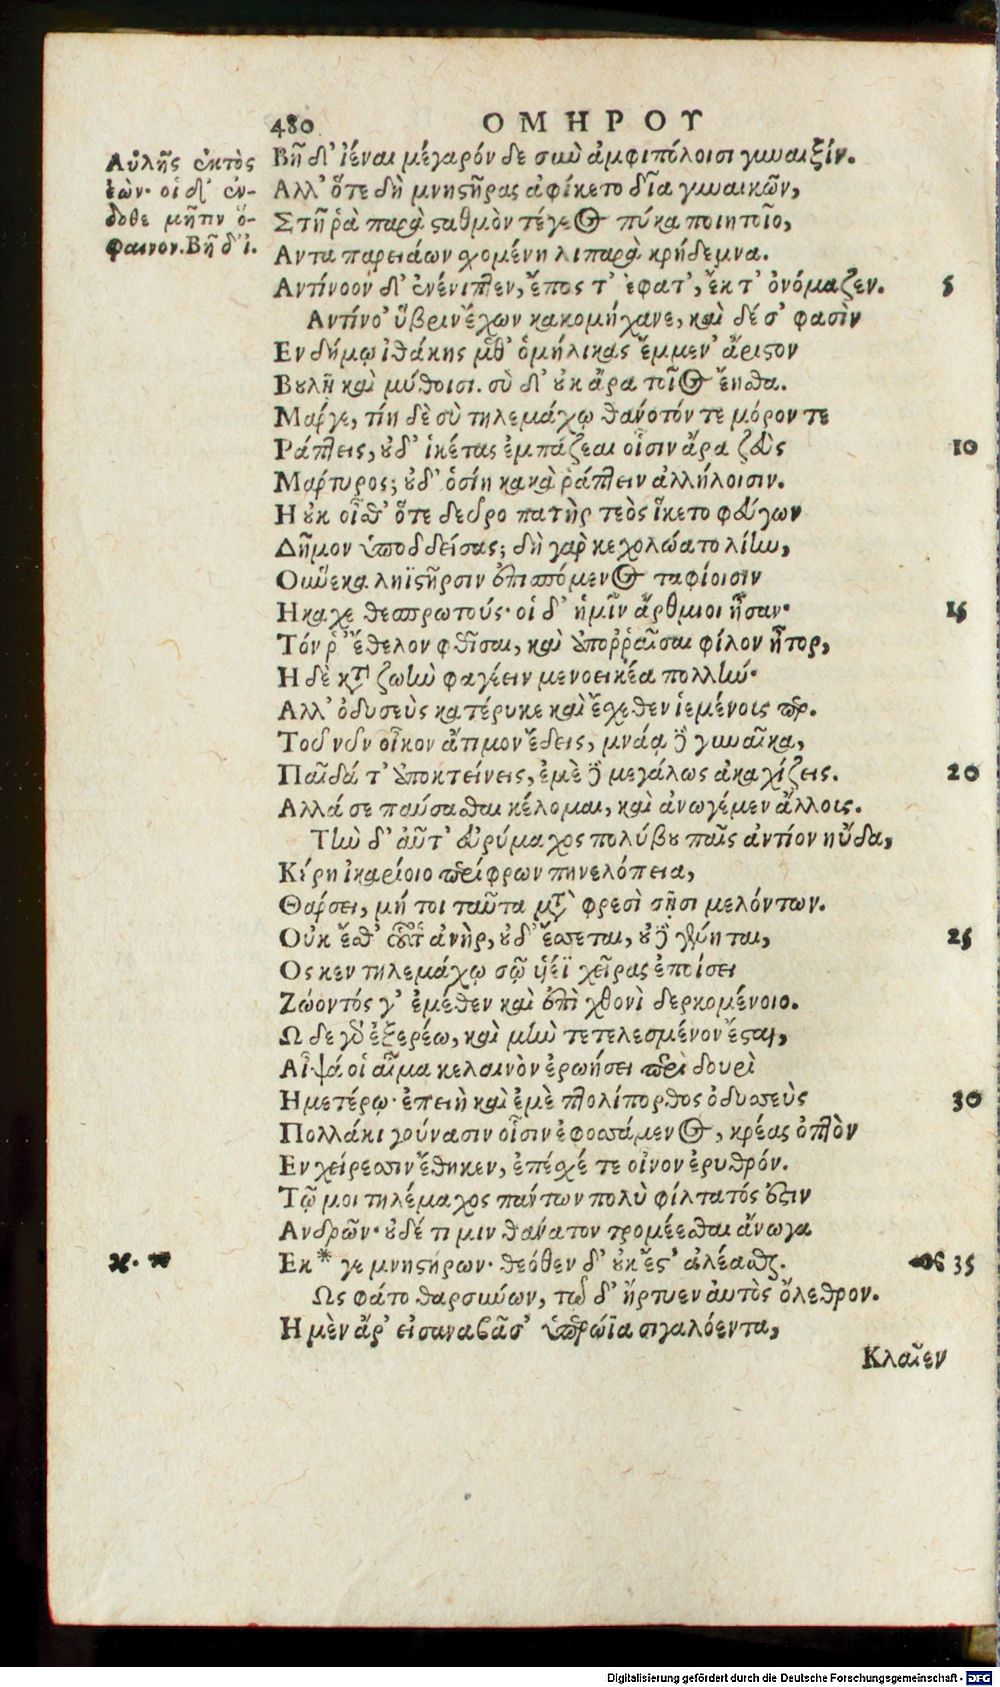 480 ΟΜΗΡΟΥ
Αὐλῆς ἐκτὸς
ἐὼν· οἱ δ' ἔν-
δοθι μῆτιν ὕ-
φαινον. Βῆ δ' ἰ.
Βῆ δ' ἰέναι μέγαρόν δε σιωὺ ἀμφιπόλοισι γυναιξίν.
Αλλ' ὅτε δὴ μνηστῆρας ἀφίκετο δῖα γυναικῶν,
Στῆ ῥὰ παρὰ σταθμὸν τέγεος πύκα ποιητοῖο,
Αντα παρειάων χομένη λιπαρὰ κρήδεμνα.
Αντίνοον δ' ἐνένιπτεν, ἔπος τ' ἔφατ', ἔκ τ' ὀνόμαζεν. 5
Αντίνο' ὕβριν ἔχων κακομήχανε, καὶ δέ σ' φασὶν
Εν δήμῳ ἰθάκης μεθ' ὁμήλικας ἔμμεν' ἄριστον
Βουλῇ καὶ μύθοισι. σὺ δ' οὐκ ἄρα τοῖος ἔησθα.
Μάργε, τίη δὲ σὺ τηλεμάχῳ θάνατόν τε μόρον τε
Ράπτεις, οὐδ' ἱκέτας ἐμπάζεαι οἷσιν ἄρα ζεὺς 10
Μάρτυρος; οὐδ' ὁσίη κακὰ ῥάπτειν ἀλλήλοισιν.
Η οὐκ οἶσθ' ὅτε δεῦρο πατὴρ τεὸς ἵκετο φεύγων
Δῆμον ὑποδδείσας; δὴ γὰρ κεχολώατο λίην,
Οὕνεκα ληϊστῆρσιν ἐπισπόμενος ταφίοισιν
Ηκαχε θεσπρωτούς· οἱ δ' ἡμῖν ἄρθμιοι ἦσαν· 15
Τόν ῥ' ἔθελον φθῖσαι, καὶ ἀπορῥαῖσαι φίλον ἦτορ,
Η δὲ κτ' ζωὴν φαγέειν μενοεικέα πολλήν·
Αλλ' ὀδυσεὺς κατέρυκε καὶ ἔσχεθεν ἱεμένοις περ.
Τοῦ νῦν οἶκον ἄτιμον ἔδεις, μνάᾳ δὲ γυναῖκα,
Παῖδά τ' ἀποκτείνεις, ἐμὲ δὲ μεγάλως ἀκαχίζεις. 20
Αλλά σε παύσασθαι κέλομαι, καὶ ἀνωγέμεν ἄλλοις.
Τὴν δ' αὖτ' εὐρύμαχος πολύβου παῖς ἀντίον ηὔδα,
Κύρη ἰκαρίοιο περίφρων πηνελόπεια,
Θάρσει, μή τοι ταῦτα μετὰ φρεσὶ σῇσι μελόντων.
Οὐκ ἔσθ' οὗτος ἀνὴρ, οὐδ' ἔσσεται, οὐδὲ γένηται, 25
Ος κεν τηλεμάχῳ σῷ ὑέϊ χεῖρας ἐποίσει
Ζώοντός γ' ἐμέθεν καὶ ἐπὶ χθονὶ δερκομένοιο.
Ω δε γδ ἐξερέω, καὶ μὴν τετελεσμένον ἔσται,
Αἶψά οἱ αἷμα κελαινὸν ἐρωήσει περὶ δουρὶ
Ημετέρῳ· ἐπειὴ καὶ ἐμὲ πτολίπορθος ὀδυσσεὺς 30
Πολλάκι γούνασιν οἷσιν ἐφεσσάμενος, κρέας ὀπτὸν
Εν χείρεσσιν ἔθηκεν, ἐπέσχέ τε οἶνον ἐρυθρόν.
Τῷ μοι τηλέμαχος πάντων πολὺ φίλτατός ἐστιν
Ανδρῶν· οὐδέ τι μιν θάνατον τρομέεσθαι ἄνωγα
Εκ * γε μνηστήρων· θεόθεν δ' οὐκ ἔστ' ἀλέασθαι. 35
Ως φάτο θαρσύνων, τῷ δ' ἤρτυεν αὐτὸς ὄλεθρον.
Η μὲν ἄρ' εἰσαναβᾶσ' ὑπερώϊα σιγαλόεντα,
Κλαῖεν
Digitalisierung gefördert durch die Deutsche Forschungsgemeinschaft - DFG